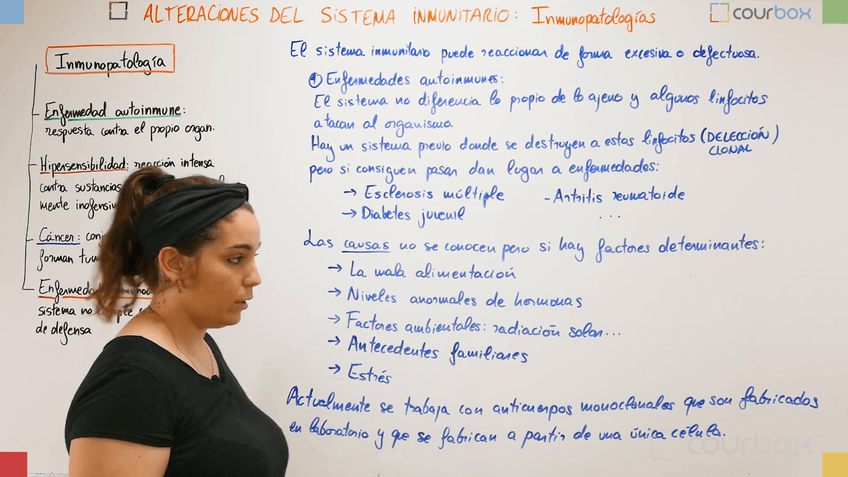 ALTERACIONES DEL SISTEMA INMUNITARIO: Inmunopatologías
courbox
Inmunopatología
Enfermedad autoinmune:
respuesta contra el propio organ.
Hipersensibilidad: reacción intensa
contra sustancias
mente inofensiv
Cáncer: con
forman tum
Enfermedad
sistema no
de defensa
El sistema inmunitario puede reaccionar de forma excesiva o defectuosa.
① Enfermedades autoinmunes:
El sistema no diferencia lo propio de lo ajeno y algunos linfocitos
atacan al organismo.
Hay un sistema previo donde se destruyen a estos linfocitos (DELECCIÓN CLONAL)
pero si consiguen pasar dan lugar a enfermedades:
→ Esclerosis múltiple - Artritis reumatoide
→ Diabetes juvenil ...
Las causas no se conocen pero si hay factores determinantes:
→ La mala alimentación
→ Niveles anormales de hormonas
→ Factores ambientales: radiación solar...
→ Antecedentes familiares
→ Estrés
Actualmente se trabaja con anticuerpos monoclonales que son fabricados
en laboratorio y que se fabrican a partir de una única célula.
courbox